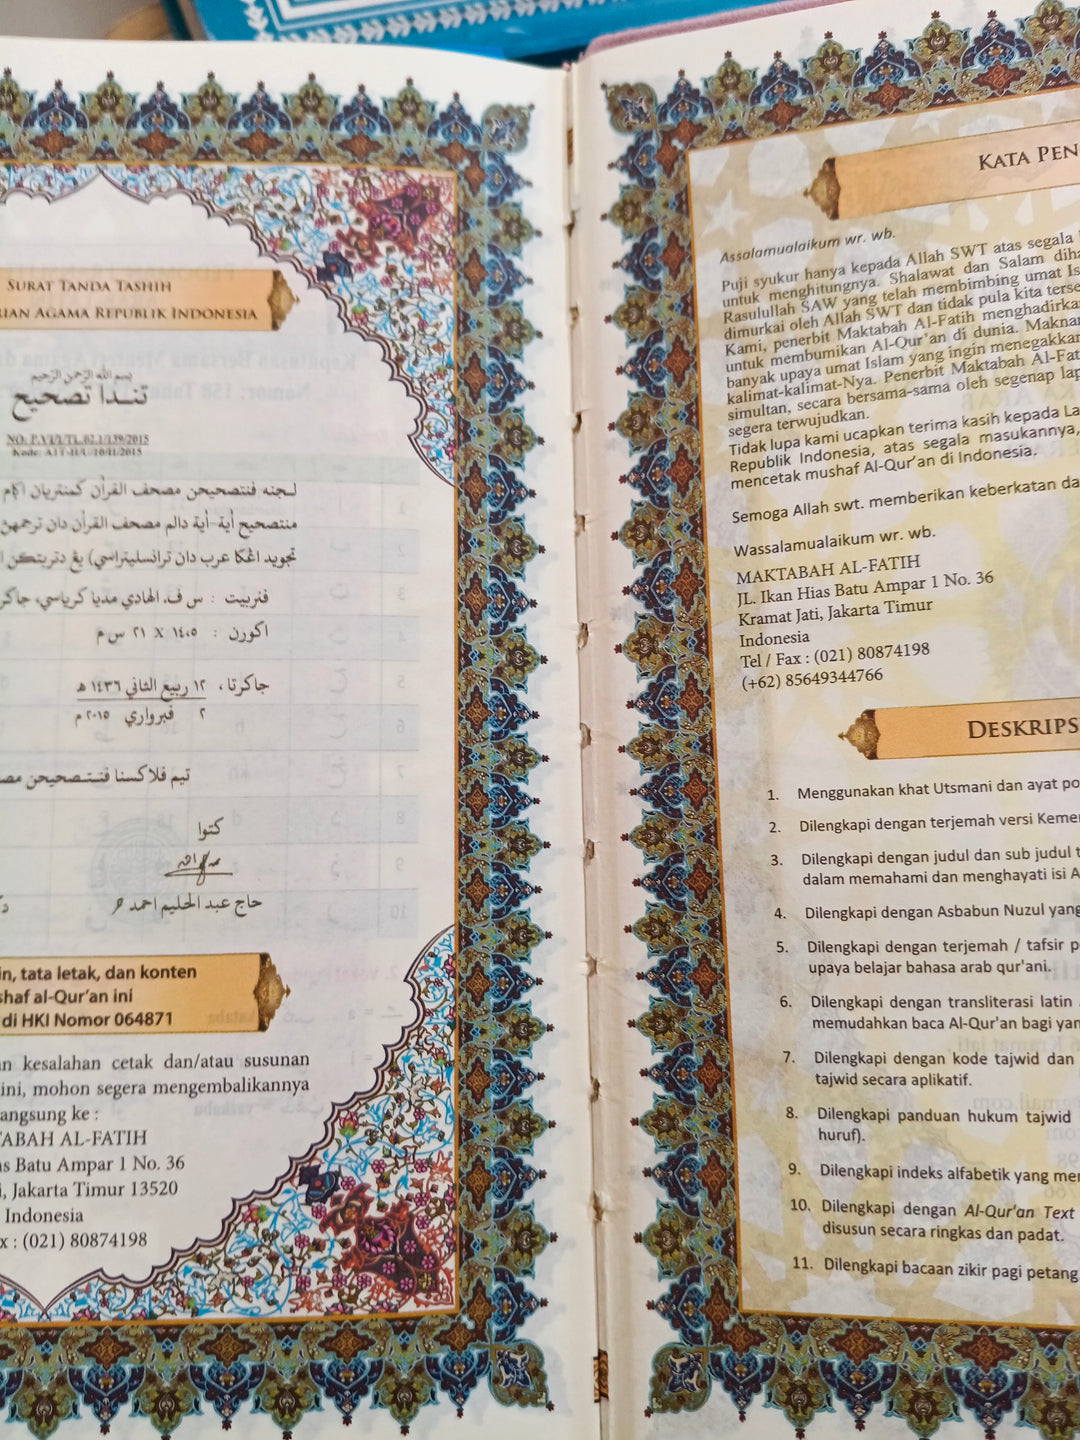 SURAT TANDA TASHIH
AGAMA REPUBLIK INDONESIA
بسم الله الرحمن الرحيم
تندا تصحيح
NO: P.VI/1/TL.02.1/139/2015
Kode: A1T-II/U/10/II/2015
لجنه فنتصحيحن مصحف القرأن كمنتريان
منتصحيح أية-أية دالم مصحف القرأن دان ترجمهن
تجويد اڠكا عرب دان ترانسليتراسي) يڠ دتربتكن
فنربيت : س ف. الهادي مديا كرياسي، جاكر
اكورن : ١٤،٥ X ٢١ س م
جاكرتا، ١٢ ربيع الثاني ١٤٣٦ ه
٢ فبرواري ٢٠١٥ م
تيم فلاكسنا فنتصحيحن
كتوا
حاج عبد الحليم احمد
tata letak, dan konten
al-Qur'an ini
di HKI Nomor 064871
kesalahan cetak dan/atau susunan
ini, mohon segera mengembalikannya
ke :
AL-FATIH
Batu Ampar 1 No. 36
Jakarta Timur 13520
Indonesia
: (021) 80874198
KATA PEN
Assalamualaikum wr. wb.
Puji syukur hanya kepada Allah SWT atas segala
untuk menghitungnya. Shalawat dan Salam diha
Rasulullah SAW yang telah membimbing umat Is
dimurkai oleh Allah SWT dan tidak pula kita terse
Kami, penerbit Maktabah Al-Fatih menghadirka
untuk membumikan Al-Qur'an di dunia. Maknan
banyak upaya umat Islam yang ingin menegakkan
kalimat-kalimat-Nya. Penerbit Maktabah Al-Fat
simultan, secara bersama-sama oleh segenap lap
segera terwujudkan.
Tidak lupa kami ucapkan terima kasih kepada La
Republik Indonesia, atas segala masukannya,
mencetak mushaf Al-Qur'an di Indonesia.
Semoga Allah swt. memberikan keberkatan da
Wassalamualaikum wr. wb.
MAKTABAH AL-FATIH
JL. Ikan Hias Batu Ampar 1 No. 36
Kramat Jati, Jakarta Timur
Indonesia
Tel / Fax : (021) 80874198
(+62) 85649344766
DESKRIPS
1. Menggunakan khat Utsmani dan ayat po
2. Dilengkapi dengan terjemah versi Keme
3. Dilengkapi dengan judul dan sub judul t
dalam memahami dan menghayati isi A
4. Dilengkapi dengan Asbabun Nuzul yang
5. Dilengkapi dengan terjemah / tafsir p
upaya belajar bahasa arab qur'ani.
6. Dilengkapi dengan transliterasi latin
memudahkan baca Al-Qur'an bagi yan
7. Dilengkapi dengan kode tajwid dan
tajwid secara aplikatif.
8. Dilengkapi panduan hukum tajwid
huruf).
9. Dilengkapi indeks alfabetik yang me
10. Dilengkapi dengan Al-Qur'an Text
disusun secara ringkas dan padat.
11. Dilengkapi bacaan zikir pagi petang